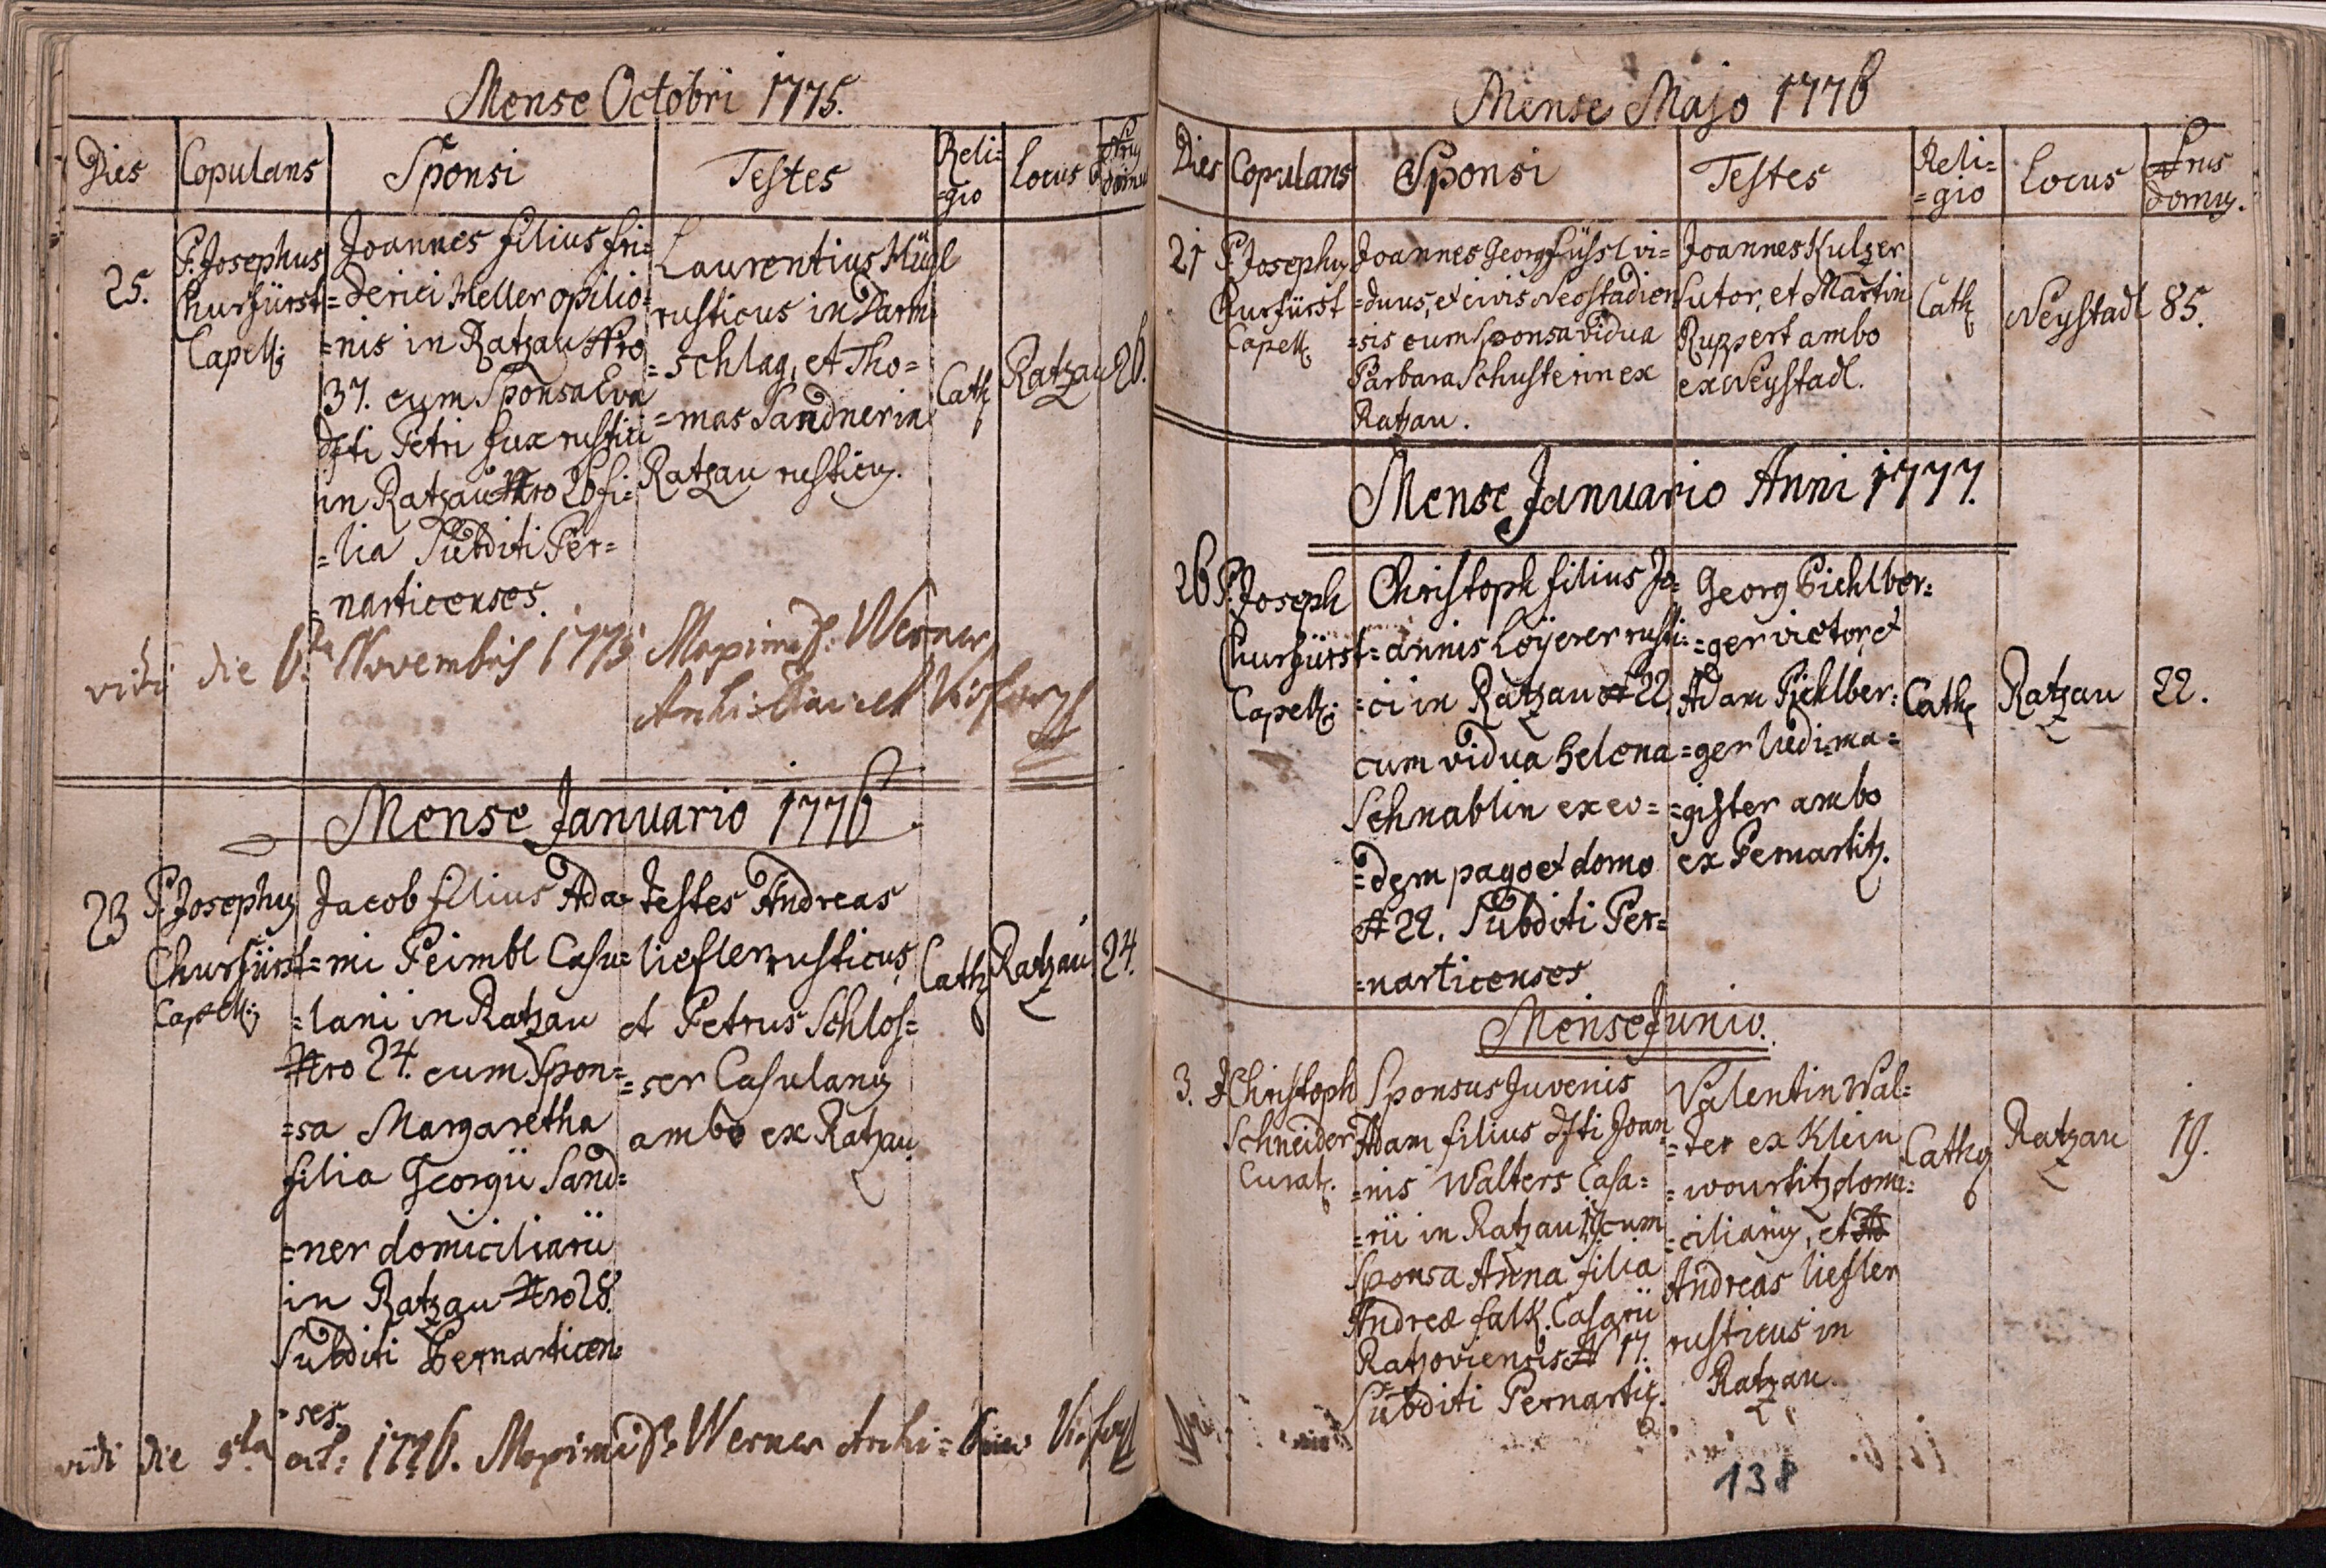 Mense Octobri 1775.
Dies Copulans Sponsi Testes Reli=
=gio Locus Nrus
domus
25.
P. Josephus
Churfürst
Capell:
Joannes filius Fri=
=derici Heller opilio=
=nis in Ratzau Nro
37. cum Sponsa Eva
dfti Petri Fux rustici
in Ratzau Nro 26 fi=
=lia Subditi Per=
=narticenses.
Laurentius Hügl
rusticus in Darm
=schlag, et Tho=
=mas Sandner in
Ratzau rusticus.
Cath
Ratzau
26.
vidi die 6ta Novembris 1775 Werner
Mense Januario 1776.
23
P. Josephus
Churfürst
Capell:
Jacob filius Ada=
=mi Peimbl Casu=
=lani in Ratzau
Nro 24. cum Spon=
=sa Margaretha
filia Georgii Sand=
=ner domiciliarii
in Ratzau Nro 28.
Subditi Bernarticen=
=ses.
Testes Andreas
Liefler rusticus,
et Petrus Schlos=
=ser Casulanus
ambo ex Ratzau
Cath
Ratzau
24.
vidi die 5ta 1776. Werner Archi=
Mense Majo 1776
Dies Copulans Sponsi Testes Reli=
=gio Locus Nrus
domus.
21
P. Josephus
Churfürst
Capell.
Joannes Georg Füssl vi=
=duus, et civis Neostadien
=sis cum Sponsa vidua
Barbara Schusterin ex
Ratzau.
Joannes Kulzer
Sutor, et Martin
Ruppert ambo
ex Neystadl.
Cath
Neystadl
85.
Mense Januario Anni 1777.
26
P. Joseph
Churfürst
Capell:
Christoph filius Jo=
=annis Loÿerer rusti=
=ci in Ratzau N 22.
cum vidua Helena
Schnablin ex eo=
=dem pago et domo
N 22. Subditi Per=
=narticenses
Georg Pichlber=
=ger victor, et
Adam Pichlber=
=ger ludi=ma=
=gister ambo
ex Pernartitz.
Cath
Ratzau
22.
Mense Junio.
3.
P. Christoph
Schneider
Curat.
Sponsus Juvenis
Adam filius dfti Joan
=nis Walters Casa=
=rii in Ratzau 19 cum
Sponsa Anna filia
Andreæ Falk. Casarii
Ratzoviensis N 17.
Subditi Pernartic.
Valentin Wal=
=ter ex Klein
=wourtitz domi=
=ciliarius, et
Andreas Liefler
rusticus in
Ratzau.
Cath
Ratzau
19.
138